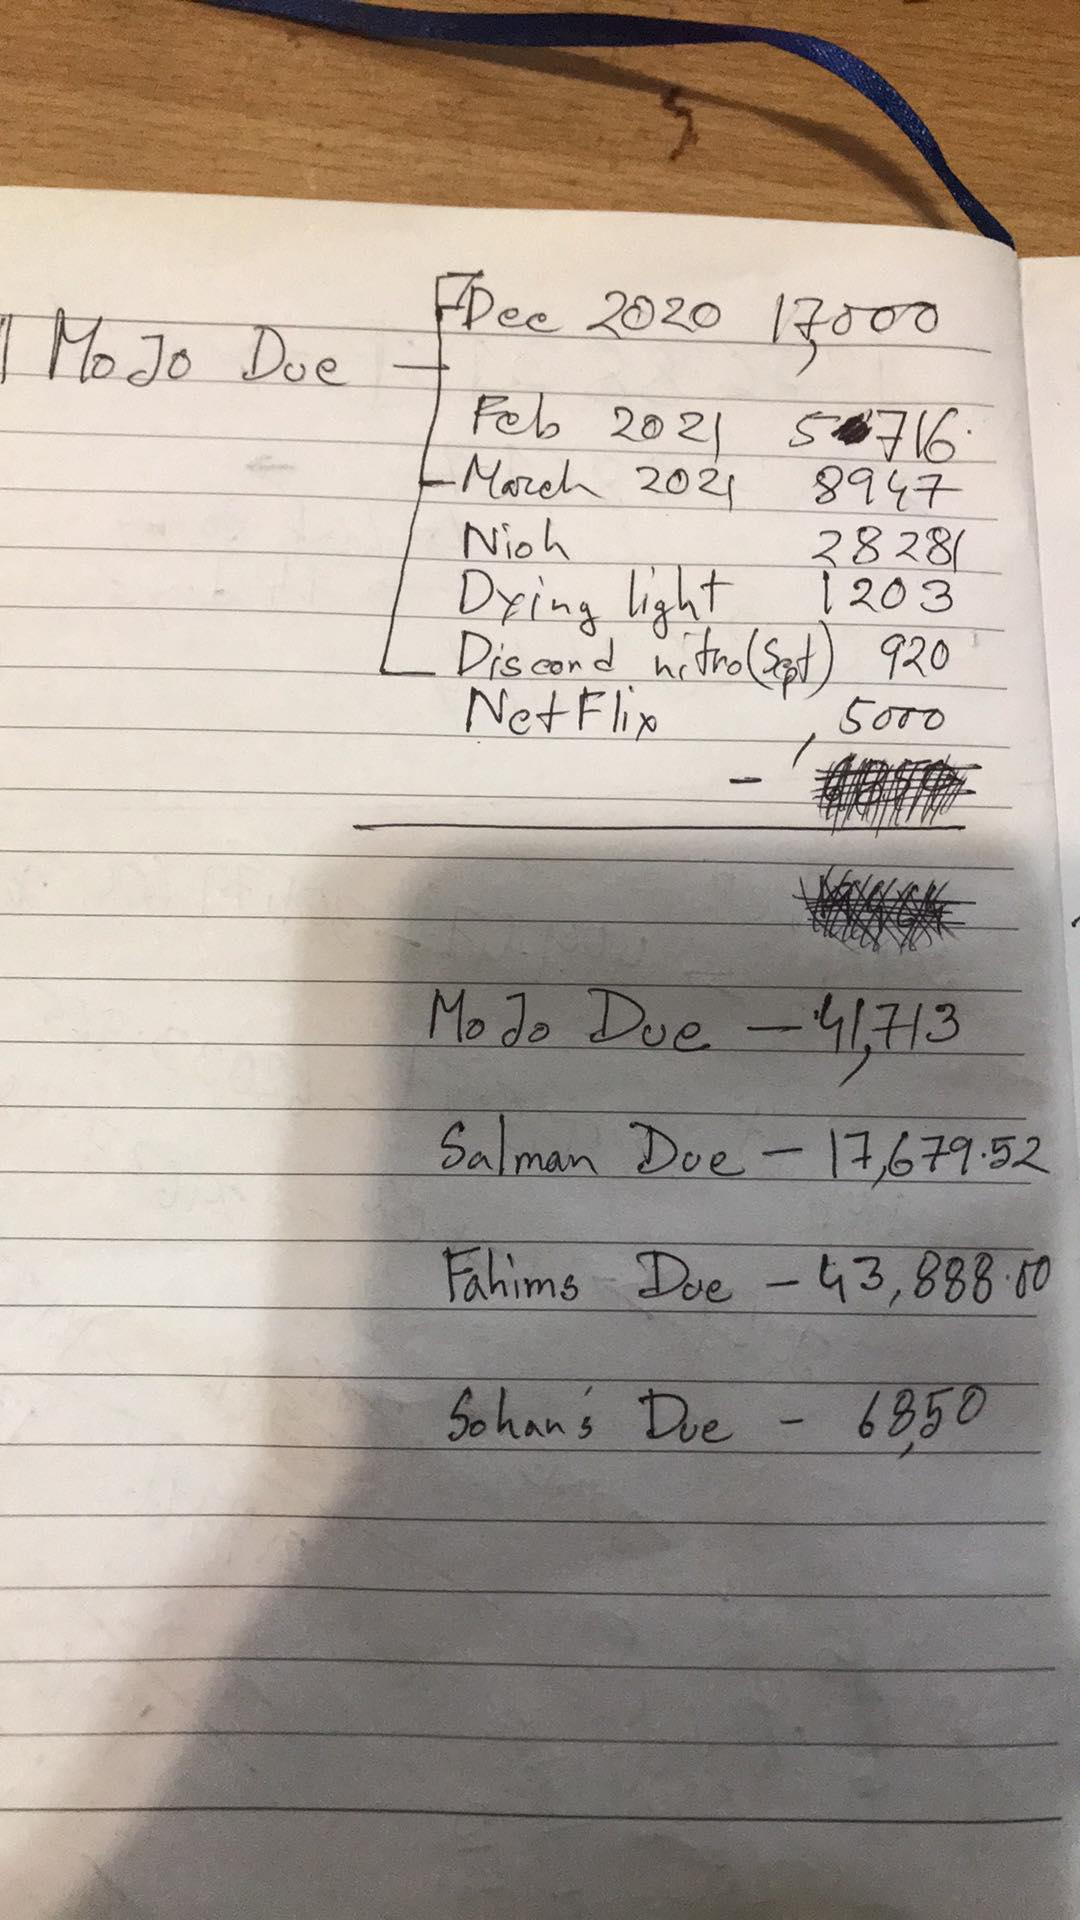 Dec 2020 17,000
MoJo Due —
Feb 2021 5716.
March 2021 8947
Nioh 28281
Dying light 1203
Discord nitro (Sept) 920
NetFlix 5000
-
MoJo Due — 41,713
Salman Due — 17,679.52
Fahims Due — 43,888.00
Sohan's Due - 68,50